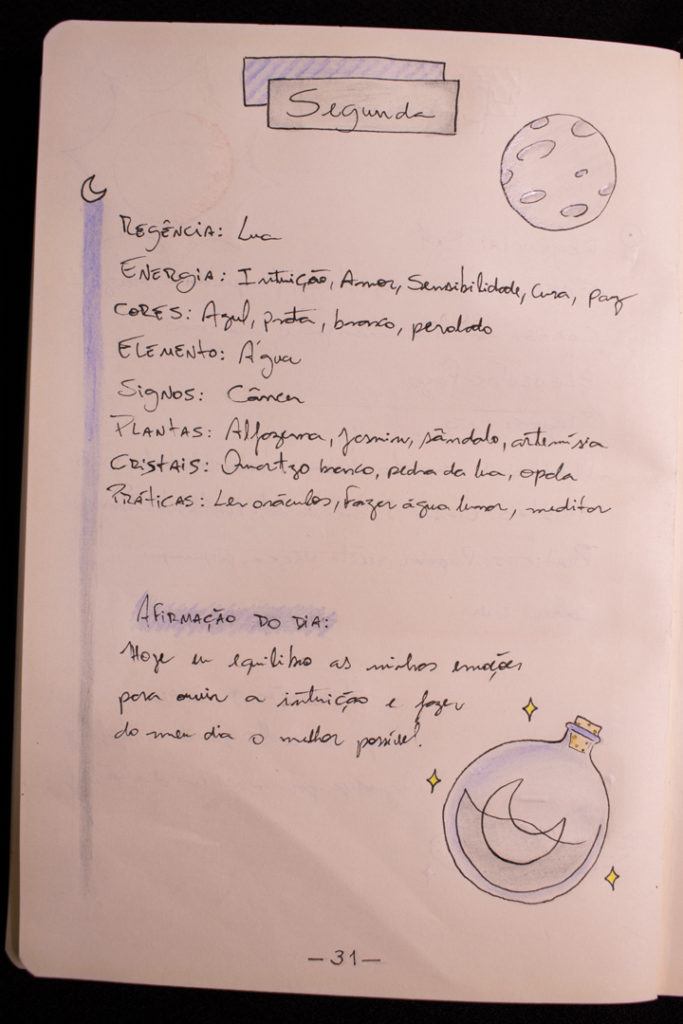 Segunda
Regência: Lua
Energia: Intuição, Amor, Sensibilidade, cura, paz
Cores: Azul, prata, branco, perolado
Elemento: Água
Signos: Câncer
Plantas: Alfazema, jasmin, sândalo, artemísia
Cristais: Quartzo branco, pedra da lua, opala
Práticas: Ler oráculos, fazer água lunar, meditar
Afirmação do dia:
Hoje eu equilibro as minhas emoções
para ouvir a intuição e fazer
do meu dia o melhor possível.
- 31 -